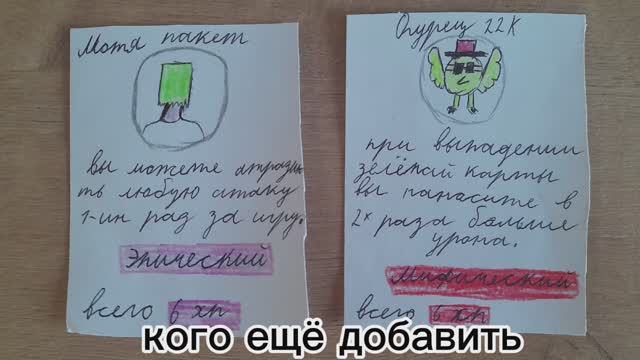 Мотя пакет
вы можете атразит
ть любую атаку
1-ин рад за игру.
Эпический
всего 6 хп
Огурец 22К
при выпадении
зелёкай карты
вы панасите в
2х раза больше
урона.
Мифический
всего 6 хп
кого ещё добавить